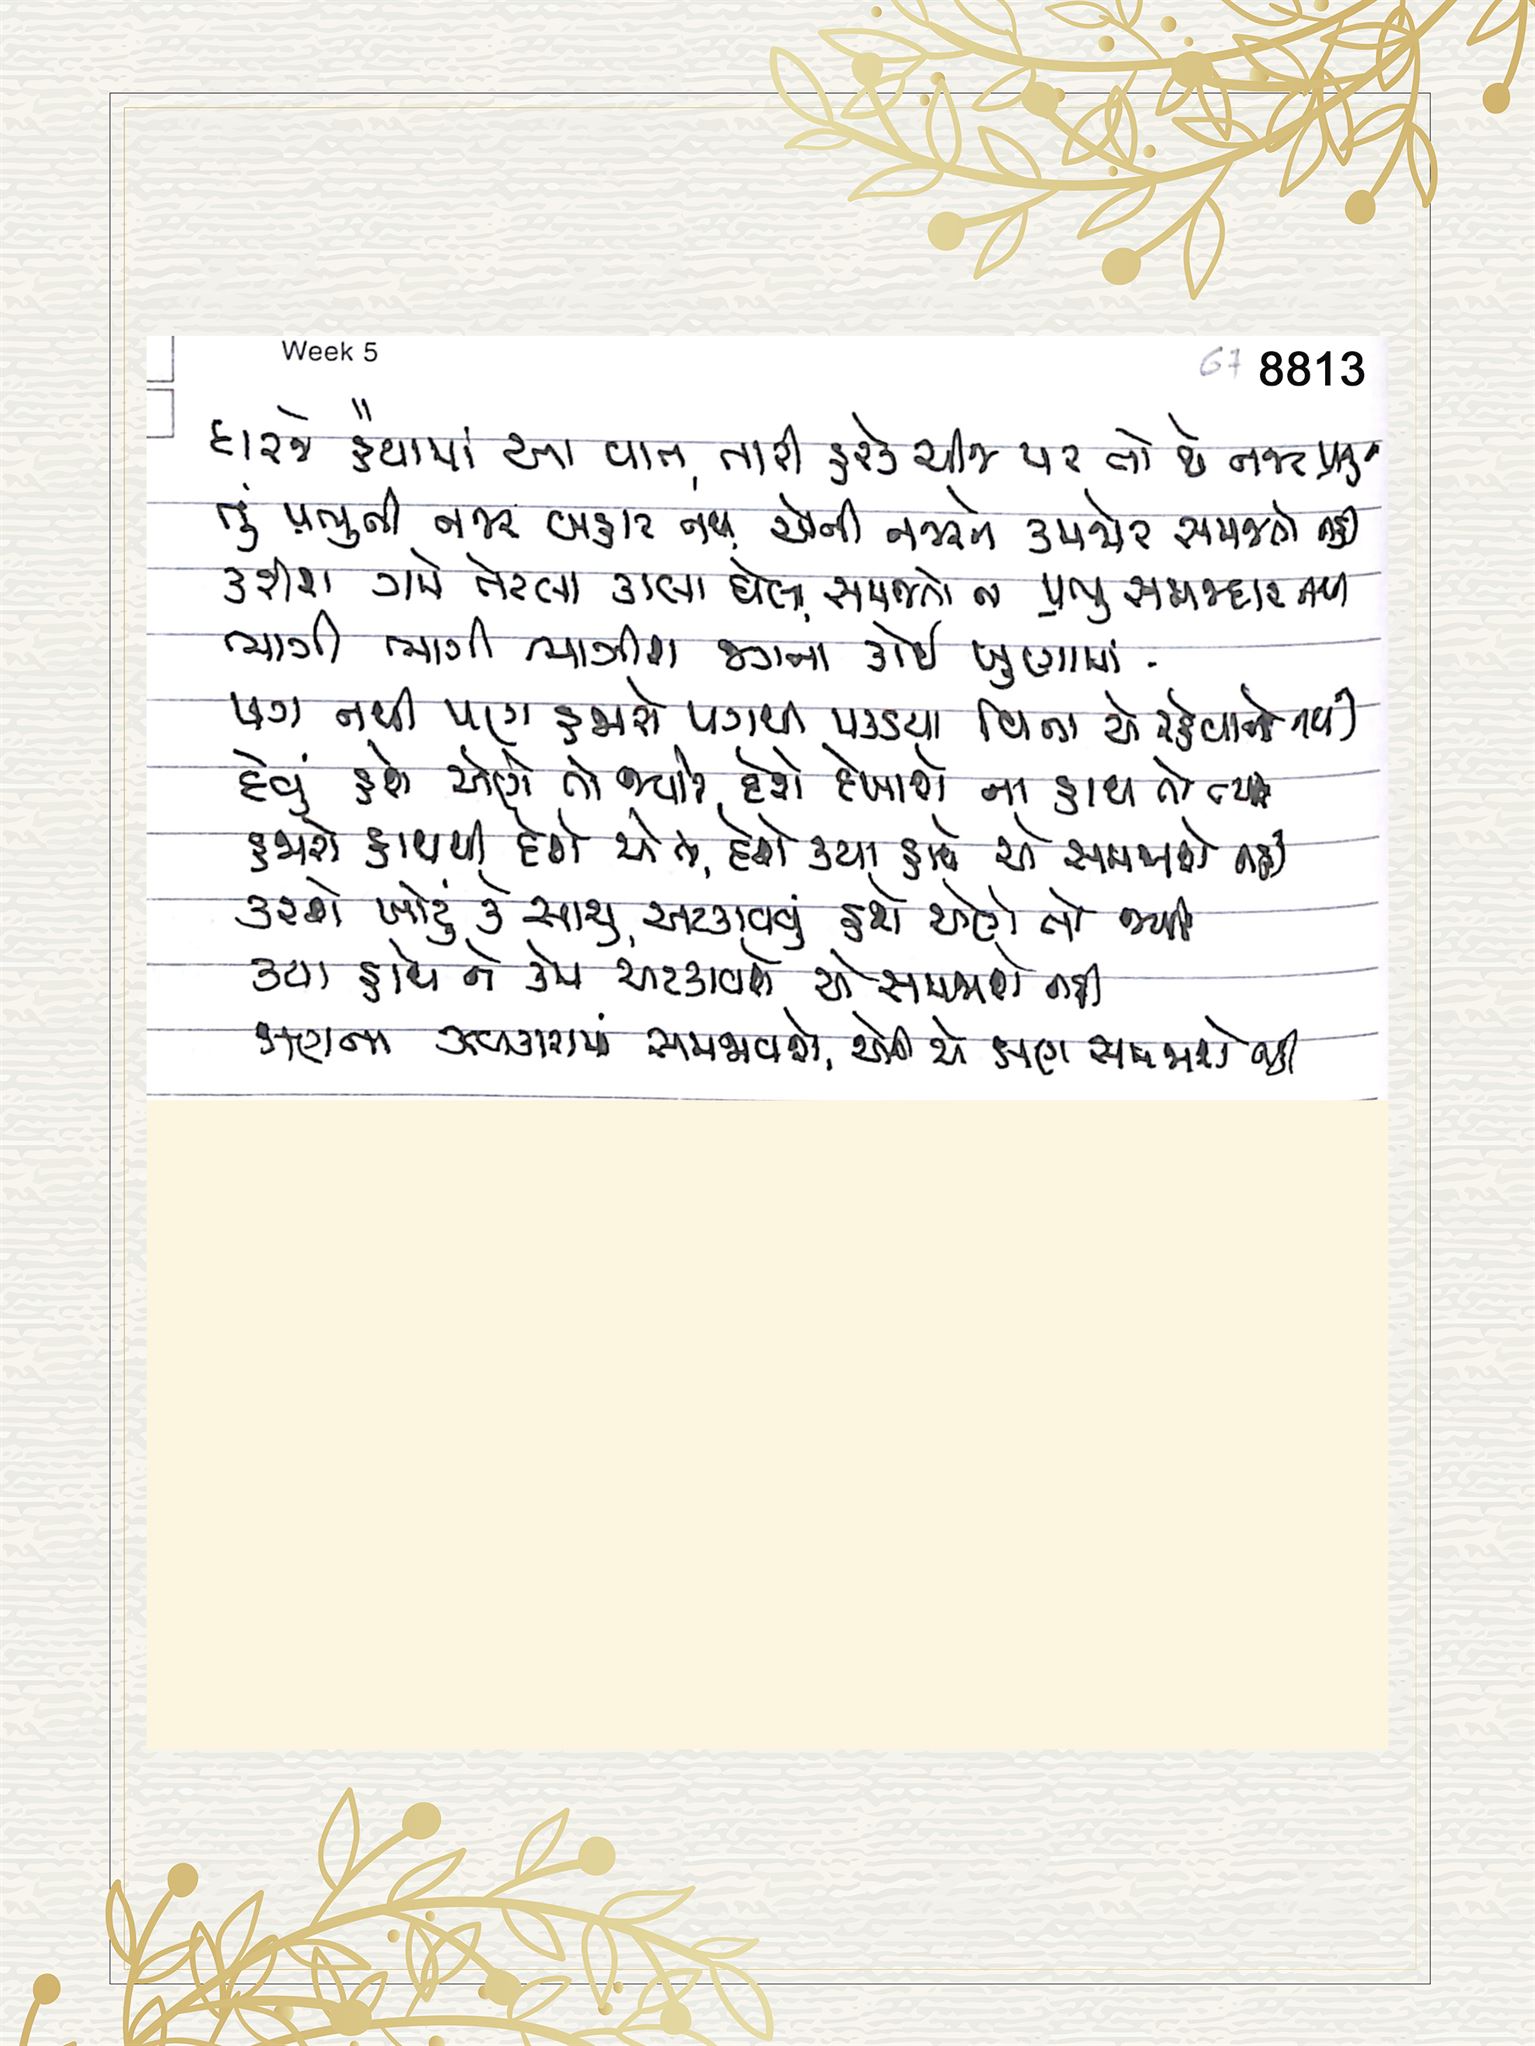 Week 5
67 8813
ધારજે હૈયામાં આ વાત, તારી હરેક ચીજ પર તો છે નજર પ્રભુની
તું પ્રભુની નજર બહાર નથી, એની નજરને કમજોર સમજતો નહીં
કરીશ ગમે તેટલા કાલા ઘેલા, સમજતો ન પ્રભુ સમજદાર નથી
ભાગી ભાગી ભાગીશ જગના કોઈ ખુણામાં.
પગ નથી પણ હજારો પગથી પકડયા વિના એ રહેવાનો નથી
દેવું હશે એણે તો જ્યારે, દેશે દેખાશે ના હાથ તો ત્યારે
હજારો હાથથી દેશે એ તો, દેશે કયા હાથે એ સમજાશે નહીં
કરશો ખોટું કે સાચુ, અટકાવવું હશે એણે તો જ્યારે
કયા હાથે ને કેમ અટકાવશે એ સમજાશે નહીં
ક્ષણના સમજાવશે, એની એ ક્ષણ સમજાશે નહીં